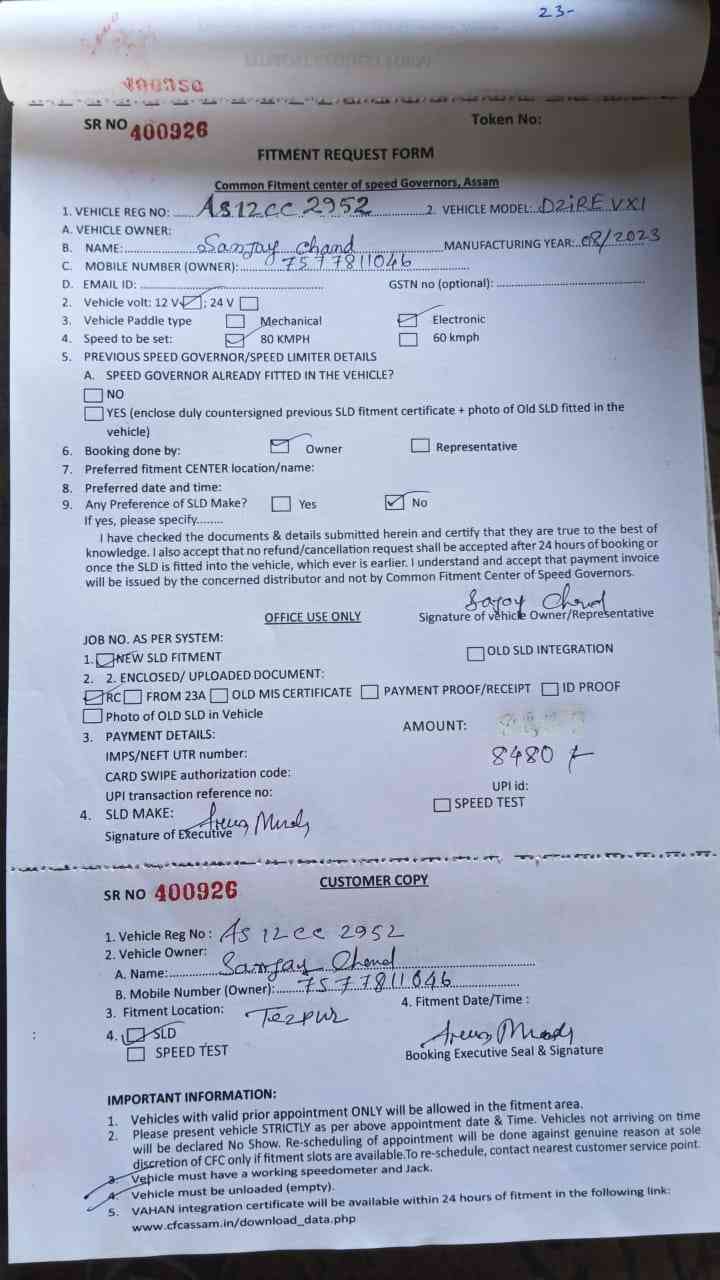 23-
400926
SR NO 400926
Token No:
FITMENT REQUEST FORM
Common Fitment center of speed Governors, Assam
1. VEHICLE REG NO: ..... AS12CC 2952 ............... 2. VEHICLE MODEL:..DZiRE VXI
A. VEHICLE OWNER:
B. NAME:.............. Sanjay Chand .................. MANUFACTURING YEAR:..08/2023
C. MOBILE NUMBER (OWNER):.......... 7577811046 ..............
D. EMAIL ID: ............................................... GSTN no (optional): ..............................................
2. Vehicle volt: 12 V ; 24 V
3. Vehicle Paddle type Mechanical Electronic
4. Speed to be set: 80 KMPH 60 kmph
5. PREVIOUS SPEED GOVERNOR/SPEED LIMITER DETAILS
A. SPEED GOVERNOR ALREADY FITTED IN THE VEHICLE?
NO
YES (enclose duly countersigned previous SLD fitment certificate + photo of Old SLD fitted in the
vehicle)
6. Booking done by: Owner Representative
7. Preferred fitment CENTER location/name:
8. Preferred date and time:
9. Any Preference of SLD Make? Yes No
If yes, please specify........
I have checked the documents & details submitted herein and certify that they are true to the best of
knowledge. I also accept that no refund/cancellation request shall be accepted after 24 hours of booking or
once the SLD is fitted into the vehicle, which ever is earlier. I understand and accept that payment invoice
will be issued by the concerned distributor and not by Common Fitment Center of Speed Governors.
OFFICE USE ONLY
Signature of vehicle Owner/Representative
JOB NO. AS PER SYSTEM:
1. NEW SLD FITMENT OLD SLD INTEGRATION
2. 2. ENCLOSED/ UPLOADED DOCUMENT:
RC FROM 23A OLD MIS CERTIFICATE PAYMENT PROOF/RECEIPT ID PROOF
Photo of OLD SLD in Vehicle
3. PAYMENT DETAILS: AMOUNT:
IMPS/NEFT UTR number: 8480
CARD SWIPE authorization code:
UPI transaction reference no: UPI id:
4. SLD MAKE: SPEED TEST
Signature of Executive
SR NO 400926 CUSTOMER COPY
1. Vehicle Reg No : AS 12 CC 2952
2. Vehicle Owner:
A. Name:............ Sanjay Chand ..............................
B. Mobile Number (Owner):....... 7577811046 ..............
3. Fitment Location: Tezpur 4. Fitment Date/Time :
4. SLD
SPEED TEST
Booking Executive Seal & Signature
IMPORTANT INFORMATION:
1. Vehicles with valid prior appointment ONLY will be allowed in the fitment area.
2. Please present vehicle STRICTLY as per above appointment date & Time. Vehicles not arriving on time
will be declared No Show. Re-scheduling of appointment will be done against genuine reason at sole
discretion of CFC only if fitment slots are available.To re-schedule, contact nearest customer service point.
3. Vehicle must have a working speedometer and Jack.
4. Vehicle must be unloaded (empty).
5. VAHAN integration certificate will be available within 24 hours of fitment in the following link:
www.cfcassam.in/download_data.php